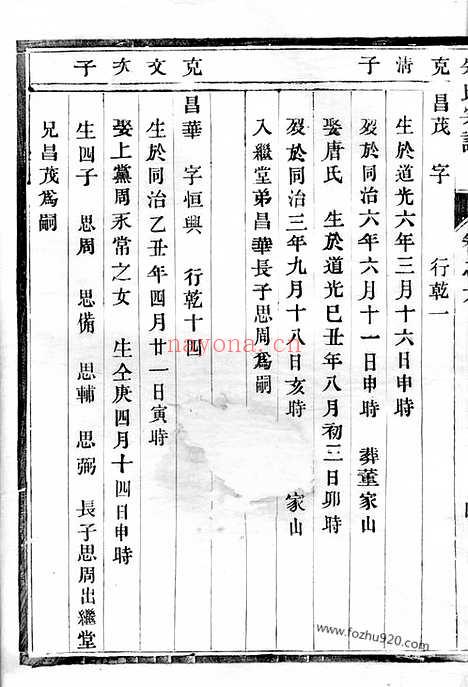 克昌茂 字 行乾一
清 生於道光六年三月十六日申時
子 歿於同治六年六月十一日申時 葬董家山
娶唐氏 生於道光己丑年八月初三日卯時
歿於同治三年九月十八日亥時 家山
入繼堂弟昌華長子思周為嗣
克昌華 字恒興 行乾十四
文 生於同治乙丑年四月廿一日寅時
次 娶上黨周永常之女 生仝庚四月十四日申時
子 生四子 思周 思備 思輔 思弼 長子思周出繼堂
兄昌茂為嗣
nayona.cn
www.fozhu920.com